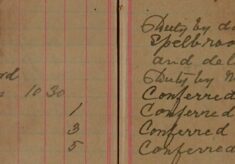 ord
s 10 30
1
3
5
Duty by d
Spelbroo
and del
Duty by N
Conferred
Conferred
Conferred
Conferred